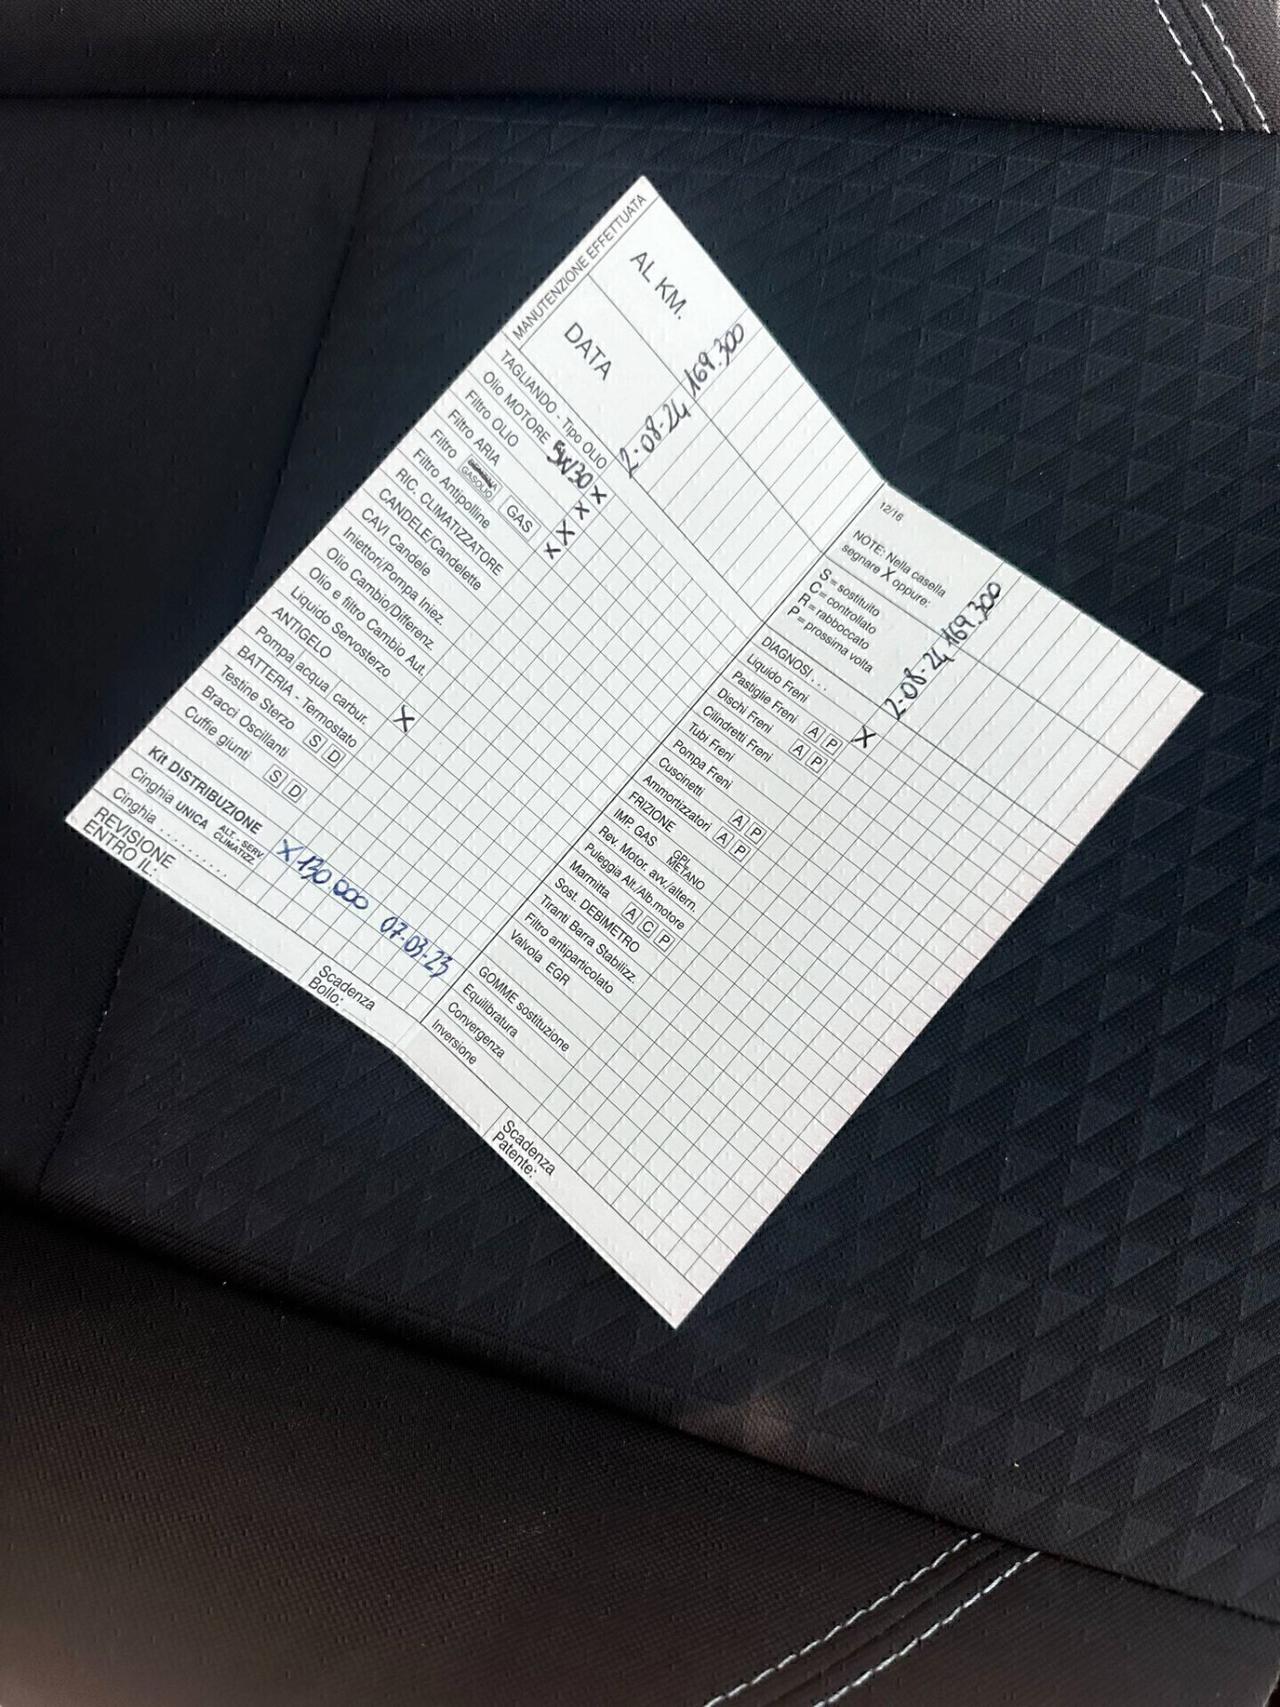 MANUTENZIONE EFFETTUATA
AL KM. 169.300
DATA 2-08-24
TAGLIANDO - Tipo OLIO
Olio MOTORE 5W30 X
Filtro OLIO X
Filtro ARIA X
Filtro GASOLIO GAS
Filtro Antipolline X
RIC. CLIMATIZZATORE
CANDELE/Candelette
CAVI Candele
Iniettori/Pompa Iniez.
Olio Cambio/Differenz.
Olio e filtro Cambio Aut.
Liquido Servosterzo
ANTIGELO
Pompa acqua/carbur.
BATTERIA - Termostato X
Testine Sterzo S D
Bracci Oscillanti
Cuffie giunti S D
Kit DISTRIBUZIONE X 130 000 07-03-23
Cinghia UNICA ALT. - SERV. CLIMATIZZ.
Cinghia ..........
REVISIONE
ENTRO IL:
Scadenza
Bollo:
12/16
NOTE: Nella casella
segnare X oppure:
S = sostituito
C = controllato
R = rabboccato
P = prossima volta
169.300
2-08-24
DIAGNOSI . . .
Liquido Freni X
Pastiglie Freni A P
Dischi Freni A P
Cilindretti Freni
Tubi Freni
Pompa Freni
Cuscinetti A P
Ammortizzatori A P
FRIZIONE
IMP. GAS GPL METANO
Rev. Motor. avv./altern.
Puleggia Alt./Alb.motore
Marmitta A C P
Sost. DEBIMETRO
Tiranti Barra Stabilizz.
Filtro antiparticolato
Valvola EGR
GOMME sostituzione
Equilibratura
Convergenza
Inversione
Scadenza
Patente: